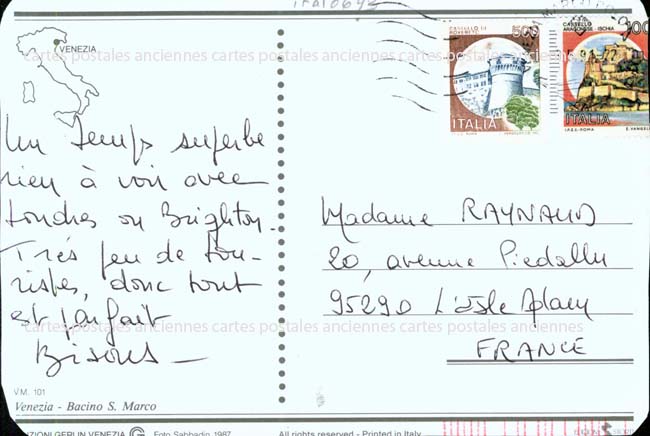 ITA10643
VENEZIA
CASTELLO DI ROVERETO
500
ITALIA
CASTELLO ARAGONESE - ISCHIA
100
ITALIA
I.P.Z.S. - ROMA
E. VANGELLI
cartes postales anciennes cartes postales anciennes cartes postales anciennes
Un temps superbe
rien à voir avec
Londres ou Brighton.
Très peu de tou-
ristes, donc tout
est parfait
Bisous -
Madame RAYNAUD
20, avenue Piedalle
95290 L'Isle Adam
FRANCE
cartes postales anciennes cartes postales anciennes cartes postales anciennes
V.M. 101
Venezia - Bacino S. Marco
EDIZIONI GERLIN VENEZIA G Foto Sabbadin 1987
All rights reserved - Printed in Italy